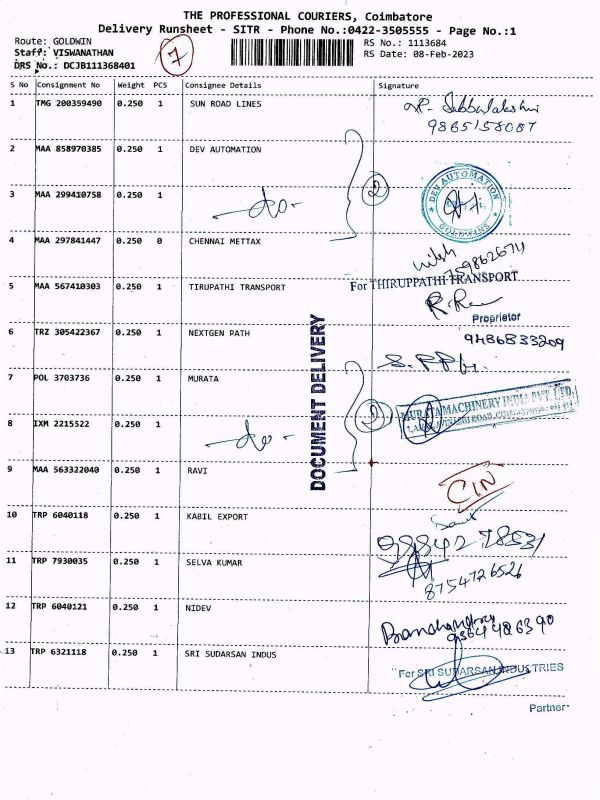 THE PROFESSIONAL COURIERS, Coimbatore
Delivery Runsheet - SITR - Phone No.:0422-3505555 - Page No.:1
Route: GOLDWIN
Staff: VISWANATHAN
DRS No.: DCJB111368401
7
RS No.: 1113684
RS Date: 08-Feb-2023
S No Consignment No Weight PCS Consignee Details Signature
1 TMG 200359490 0.250 1 SUN ROAD LINES
9865158087
2 MAA 858970385 0.250 1 DEV AUTOMATION
DEV AUTOMATION
3 MAA 299410758 0.250 1 -do- 2
4 MAA 297841447 0.250 0 CHENNAI METTAX
5 MAA 567410303 0.250 1 TIRUPATHI TRANSPORT For THIRUPPATHI TRANSPORT
Proprietor
6 TRZ 305422367 0.250 1 NEXTGEN PATH 9486833209
DOCUMENT DELIVERY
7 POL 3703736 0.250 1 MURATA
MURATA MACHINERY INDIA PVT. LTD.
8 IXM 2215522 0.250 1 -do-
9 MAA 563322040 0.250 1 RAVI
10 TRP 6040118 0.250 1 KABIL EXPORT
11 TRP 7930035 0.250 1 SELVA KUMAR
8754726526
12 TRP 6040121 0.250 1 NIDEV
13 TRP 6321118 0.250 1 SRI SUDARSAN INDUS
For SRI SUDARSAN INDUSTRIES
Partner